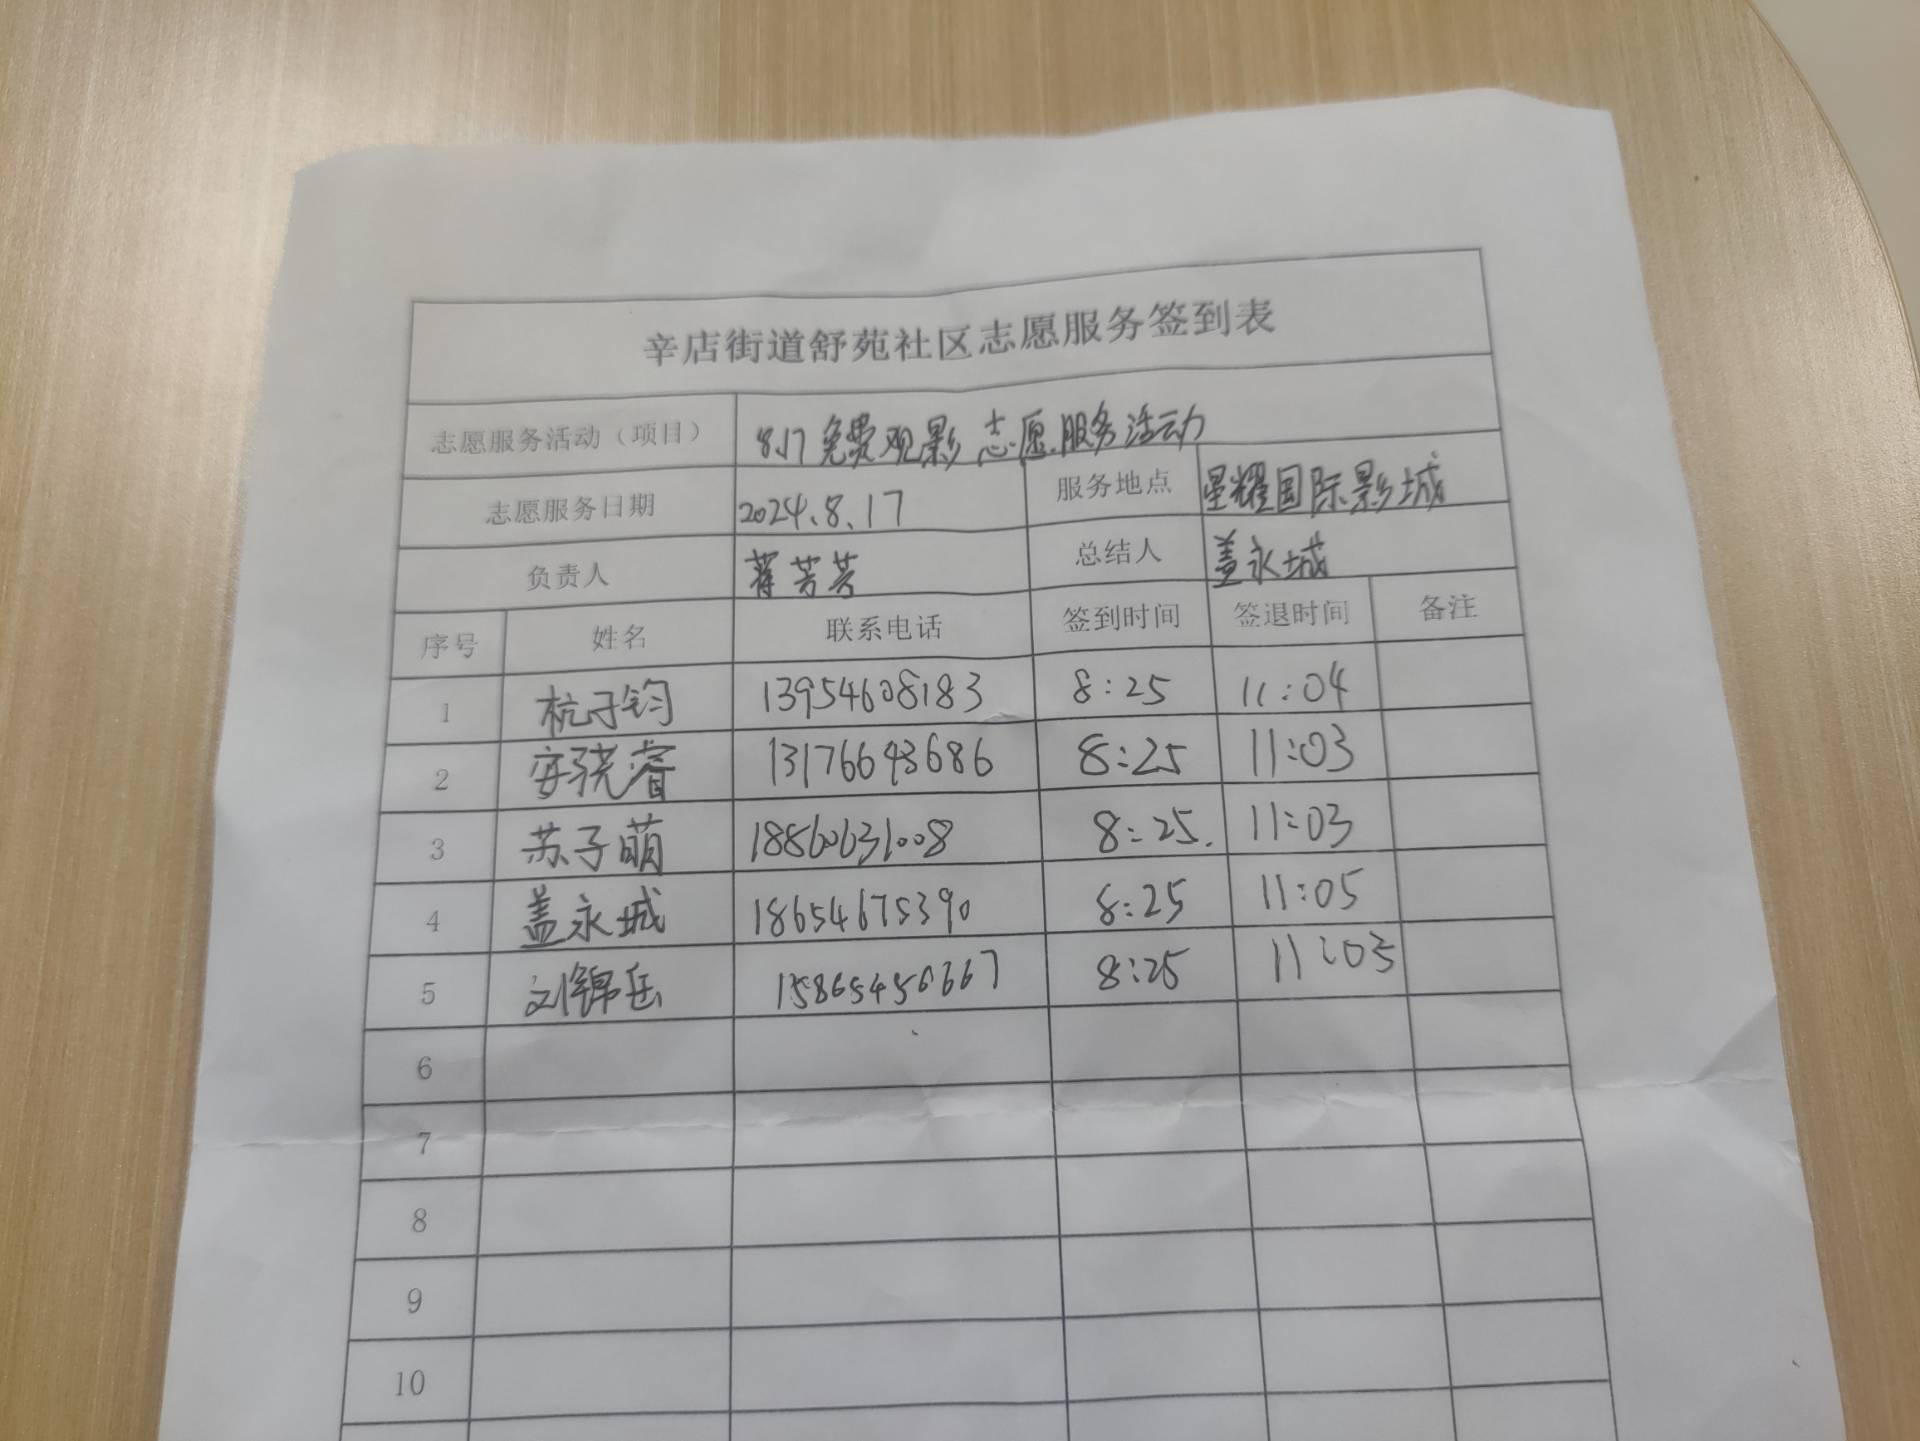 辛店街道舒苑社区志愿服务签到表
志愿服务活动（项目） 8.17免费观影志愿服务活动
志愿服务日期 2024.8.17 服务地点 星耀国际影城
负责人 蒋芳芳 总结人 盖永城
序号 姓名 联系电话 签到时间 签退时间 备注
1 杭子钧 13954608183 8:25 11:04
2 安骁睿 13176643686 8:25 11:03
3 苏子萌 18860631008 8:25. 11:03
4 盖永城 18654675390 8:25 11:05
5 刘锦岳 15865456667 8:25 11:03
6
7
8
9
10